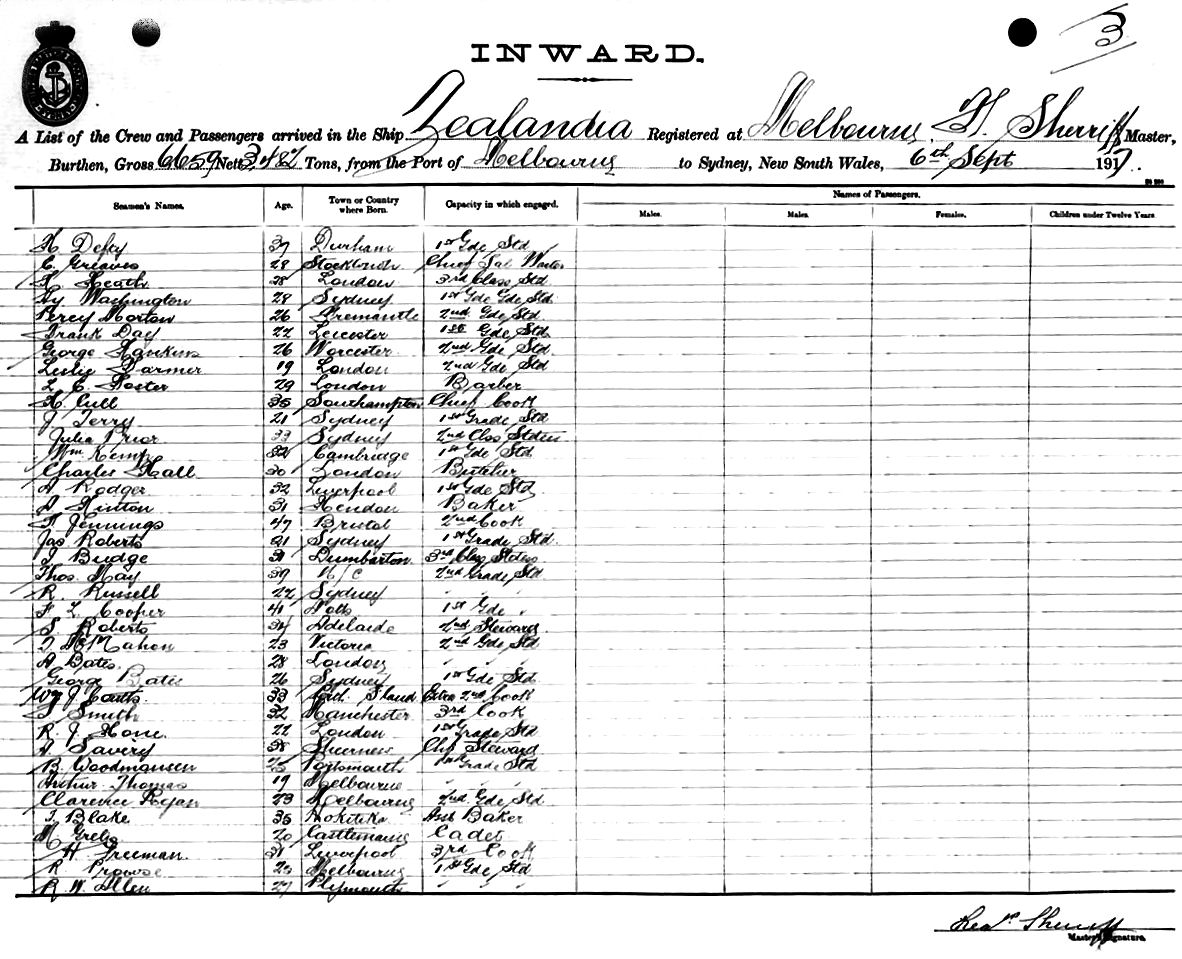 3
INWARD.
A List of the Crew and Passengers arrived in the Ship Zealandia Registered at Melbourne, Sherriff Master,
Burthen, Gross 6659 Nett 3482 Tons, from the Port of Melbourne to Sydney, New South Wales, 6th Sept 1917.
Seamen's Names. Age. Town or Country where Born. Capacity in which engaged. Names of Passengers.
Males. Males. Females. Children under Twelve Years
H Defty 37 Durham 1st Gde Std
C. Greaves 28 Chief Sal
H Heath 28 London 3rd Class Std
Hy Washington 28 Sydney 1st Gde Gde Std.
Percy Morton 26 Fremantle 2nd Gde Std.
Frank Day 22 Leicester 1st Gde Std.
George Hankins 26 Worcester 2nd Gde Std.
Leslie Farmer 19 London 2nd Gde Std
L. C. Foster 29 London Barber
H. Cull 35 Southampton Chief Cook
J Terry 21 Sydney 1st Grade Std
Julia Prior 33 Sydney 2nd Clss
Wm Kemp 32 Cambridge 1st Gde Std
Charles Hall 30 London Butcher
A Rodger 32 Liverpool 1st Gde Std
A Hinton 31 Hendon Baker
Jennings 47 Bristol 2nd Cook
Jas Roberts 21 Sydney 1st Grade Std.
J Budge 31 Dumbarton 3rd Class
Thos. May 39 2nd Grade Std
R. Russell 22 Sydney " "
F L Cooper 41 Notts 1st Gde "
S Roberts 34 Adelaide 2nd Steward
McMahon 23 Victoria 2nd Gde Std
A Bates. 28 London " "
George Bates 26 Sydney 1st Gde Std.
33 Extra 2nd Cook
Smith 32 Manchester 3rd Cook
R. J. Hone 22 London 1st Grade Std
A Savery 38 Sheerness Chf Steward
B. Woodmansen 25 Portsmouth 1st Grade Std
Arthur Thomas 19 Melbourne " "
Clarence Ryan 23 Melbourne 2nd Gde Std
J. Blake 35 Hokitika Asst Baker
20 Castlemaine Cadet
H Freeman. 31 Liverpool 3rd Cook
R Prowse 23 Melbourne 1st Gde Std
R W Allen 27 Plymouth " "
Sherriff
Master's Signature.